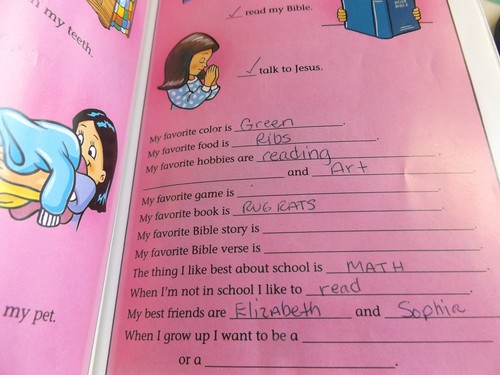 n my teeth.
my pet.
✓ read my Bible.
HOLY BIBLE
✓ talk to Jesus.
My favorite color is Green.
My favorite food is Ribs.
My favorite hobbies are reading
and Art.
My favorite game is
My favorite book is RUGRATS.
My favorite Bible story is
My favorite Bible verse is
The thing I like best about school is MATH.
When I'm not in school I like to read.
My best friends are Elizabeth and Sophia
When I grow up I want to be a
or a .